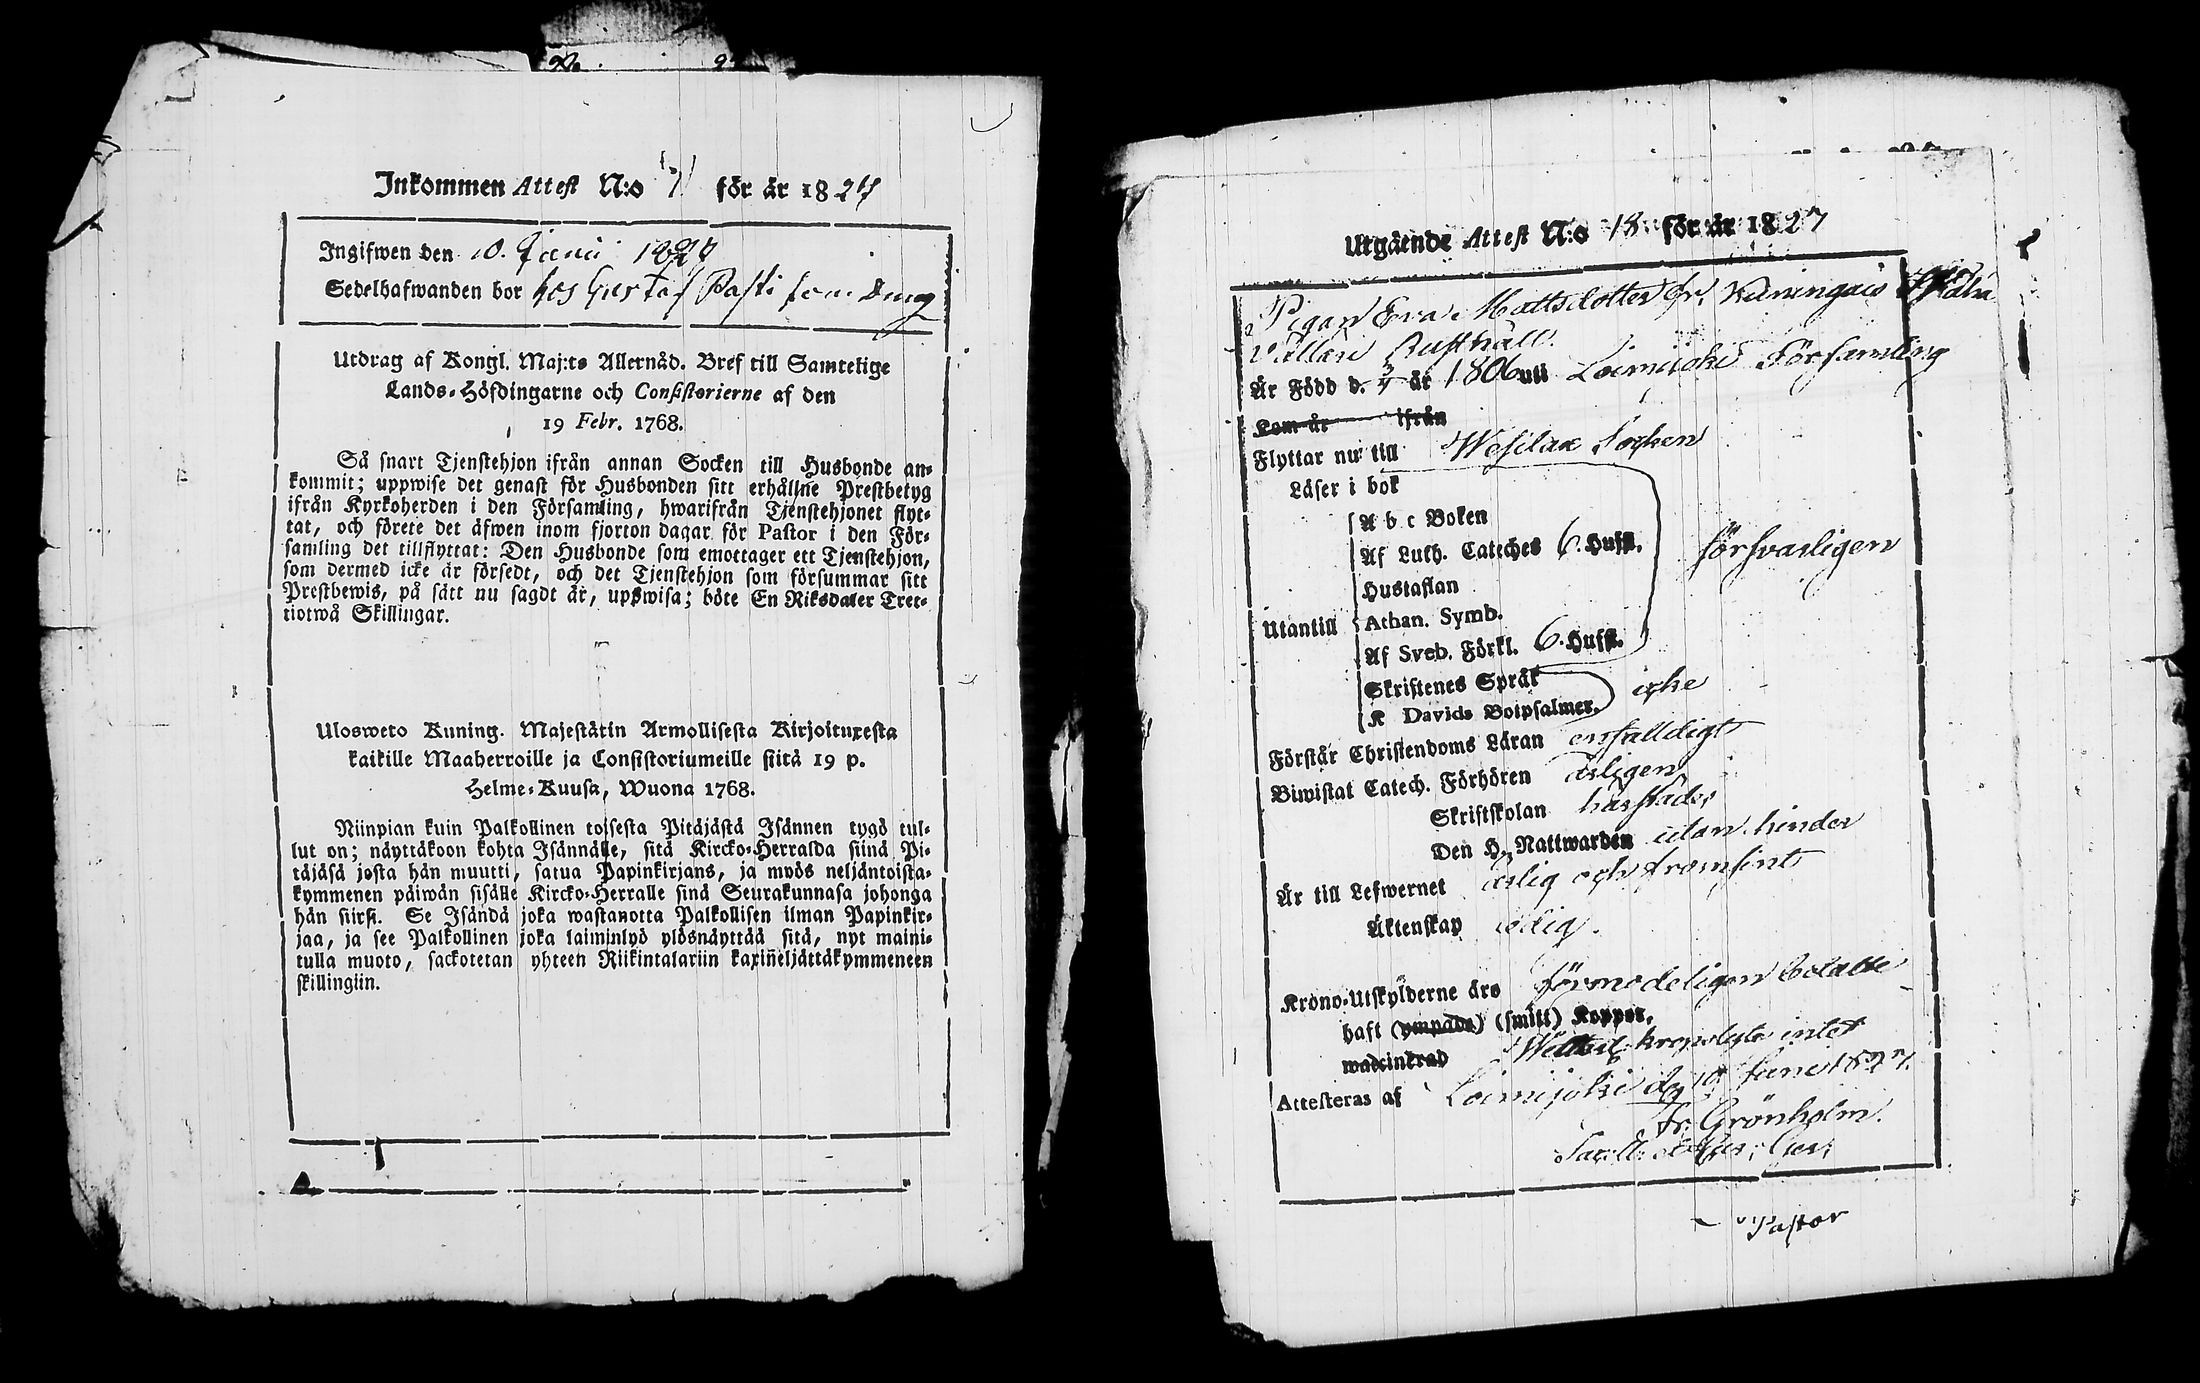 Inkommen Attest N:o 7 för år 1827
Ingifwen den 10. Junii 1827
Sedelhafwanden bor hos Gustaf Pasti som Dreng
Utdrag af Kongl. Maj:ts Allernåd. Bref till Samtelige
Lands-Höfdingarne och Consistorierne af den
19 Febr. 1768.
Så snart Tjenstehjon ifrån annan Socken till Husbonde an-
kommit; uppwise det genast för Husbonden sitt erhållne Prestbetyg
ifrån Kyrkoherden i den Församling, hwarifrån Tjenstehjonet flyt-
tat, och förete det äfwen inom fjorton dagar för Pastor i den För-
samling det tillflyttat: Den Husbonde som emottager ett Tjenstehjon,
som dermed icke är försedt, och det Tjenstehjon som försummar sitt
Prestbewis, på sätt nu sagdt är, uppwisa; böte En Riksdaler Tret-
tiotwå Skillingar.
Ulosweto Kuning. Majestätin Armollisesta Kirjoituxesta
kaikille Maaherroille ja Consistoriumeille siitä 19 p.
Helme-Kuusa, Wuona 1768.
Niinpian kuin Palkollinen toisesta Pitäjästä Isännen tygö tul-
lut on; näyttäkoon kohta Isännälle, sitä Kircko-Herralda siinä Pi-
täjäsä josta hän muutti, satua Papinkirjans, ja myös neljäntoista-
kymmenen päiwän sisälle Kircko-Herralle sinä Seurakunnasa johonga
hän siirsi. Se Isändä joka wastanotta Palkollisen ilman Papinkir-
jaa, ja see Palkollinen joka laiminlyö ylösnäyttää sitä, nyt maini-
tulla muoto, sackotetan yhteen Riikintalariin kaxineljättäkymmeneen
skillingiin.
Utgående Attest N:o 18 för år 1827
Pigan Eva Mattsdotter fr. Kuningais
Rusthåll.
Är Född d. 3/4 år 1806 uti Loimijoki Församling
Kom år ifrån
Flyttar nu till Wesilax Socken
Läser i bok
A b c Boken
Af Luth. Cateches 6. Hufst. försvarligen
Hustaflan
Utantill Athan. Symb.
Af Sveb. Förkl. 6. Hufst.
Skriftenes Språk icke
K Davids Botpsalmer.
Förstår Christendoms Läran enfalldigt
Biwistat Catech. Förhören årligen
Skriftskolan härstädes
Den H. Nattwarden utan hinder
Är till Lefwernet ärlig och fromsint
Äktenskap ledig.
Krono-Utskylderne äro förmodeligen betalte
haft (ympade) (smitt) Koppor,
waccinerad intet
Attesteras af Loimijoki d. 10 Junii 1827.
Fr. Grönholm.
Pastor